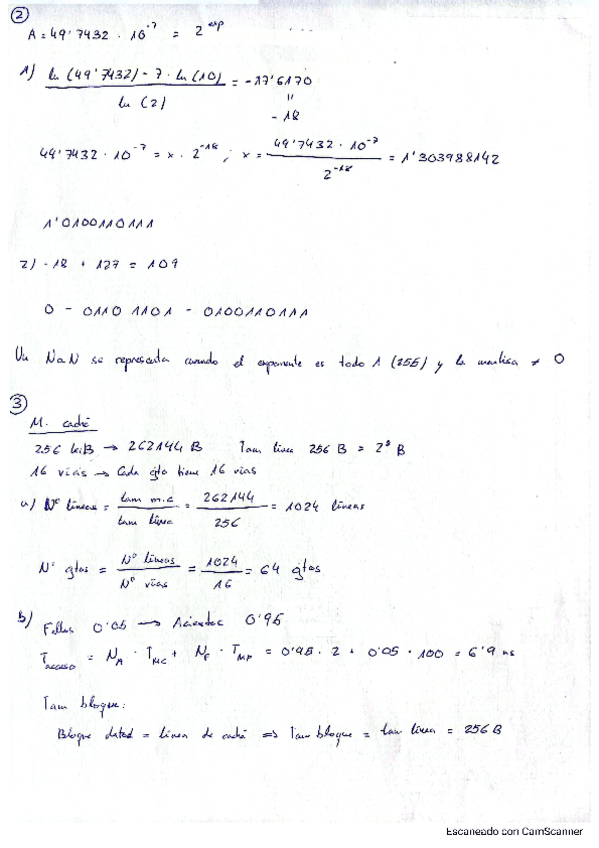 2
A = 49'7432 · 10^-7 = 2^exp
1) (ln (49'7432) - 7 · ln (10)) / ln (2) = -17'6170
=
- 18
49'7432 · 10^-7 = x · 2^-18 ; x = (49'7432 · 10^-7) / 2^-18 = 1'303988142
1'0100110111
2) - 18 + 127 = 109
0 - 0110 1101 - 0100110111
Un NaN se representa cuando el exponente es todo 1 (255) y la mantisa ≠ 0
3
M. caché
256 kiB → 262144 B Tam línea 256 B = 2^8 B
16 vías → Cada gto tiene 16 vías
a) Nº líneas = tam m.c / tam línea = 262144 / 256 = 1024 líneas
Nº gtos = Nº líneas / Nº vías = 1024 / 16 = 64 gtos
b) Fallos 0'05 → Aciertos 0'95
T_acceso = N_A · T_MC + N_F · T_MP = 0'95 · 2 + 0'05 · 100 = 6'9 ns
Tam bloque:
Bloque datos = línea de caché => Tam bloque = tam línea = 256 B
Escaneado con CamScanner